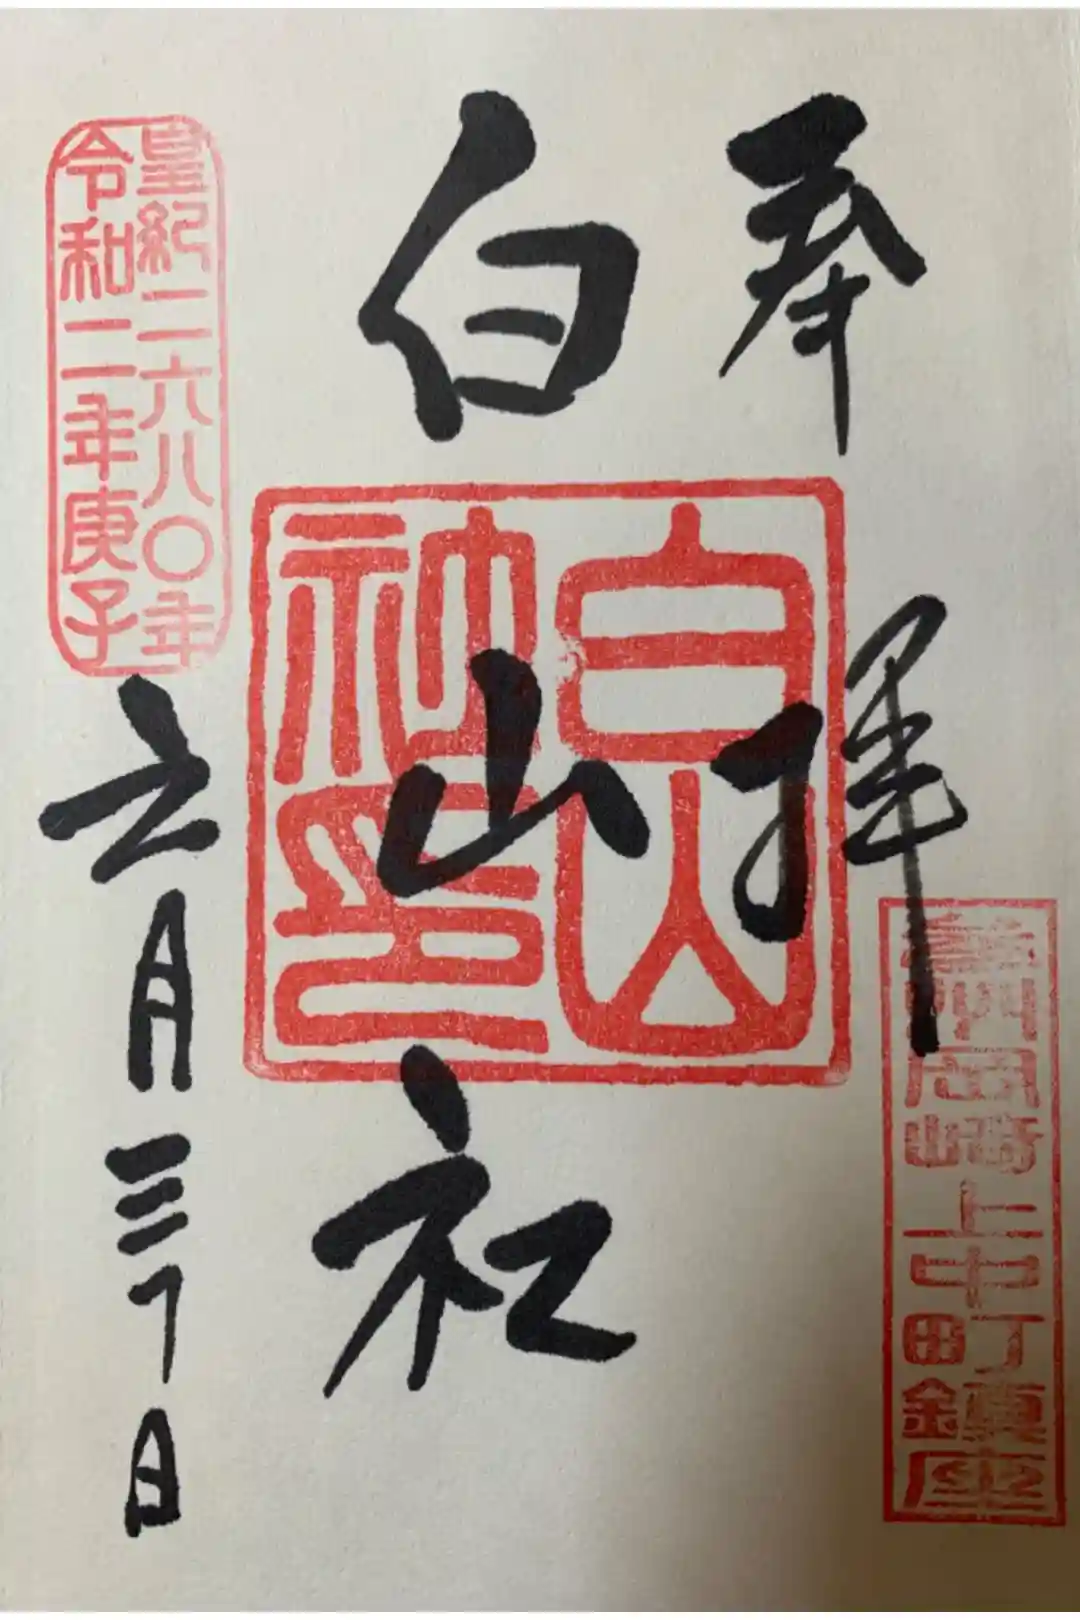 奉拝
參州岡崎上中町鎮座
白山社
白山
神印
皇紀二六八〇年
令和二年庚子
六月三十日